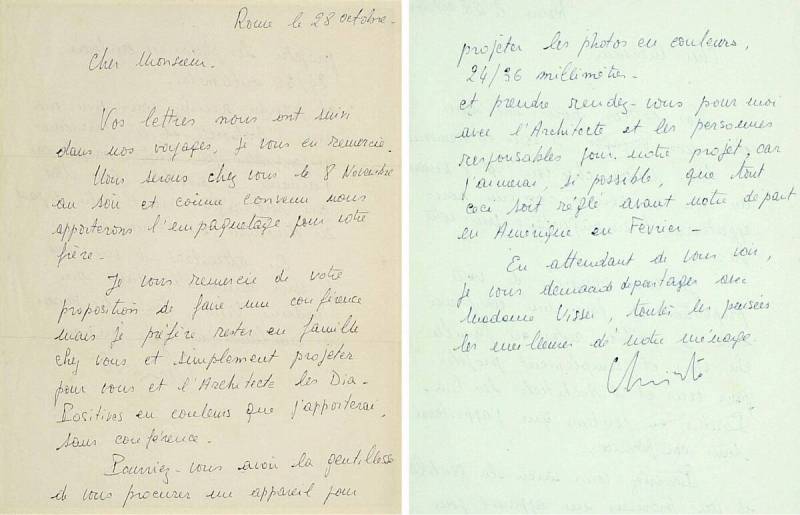 Rome le 28 octobre.
Cher Monsieur.
Vos lettres nous ont suivi
dans nos voyages, je vous en remercie.
Nous serons chez vous le 8 Novembre
au soir et comme convenu nous
apporterons l'empaquetage pour votre
frère.
Je vous remercie de votre
proposition de faire une conférence
mais je préfère rester en famille
chez vous et simplement projeter
pour vous et l'Architecte les Dia-
Positives en couleurs que j'apporterai,
sans conférence.
Pourriez-vous avoir la gentillesse
de vous procurer un appareil pour
projeter les photos en couleurs,
24/36 millimètres.
et prendre rendez-vous pour moi
avec l'Architecte et les personnes
responsables pour notre projet, car
j'aimerai, si possible, que tout
ceci soit réglé avant notre départ
en Amérique en Février -
En attendant de vous voir,
je vous demande de partager avec
Madame Visser, toutes les pensées
les meilleures de notre ménage.
Christo